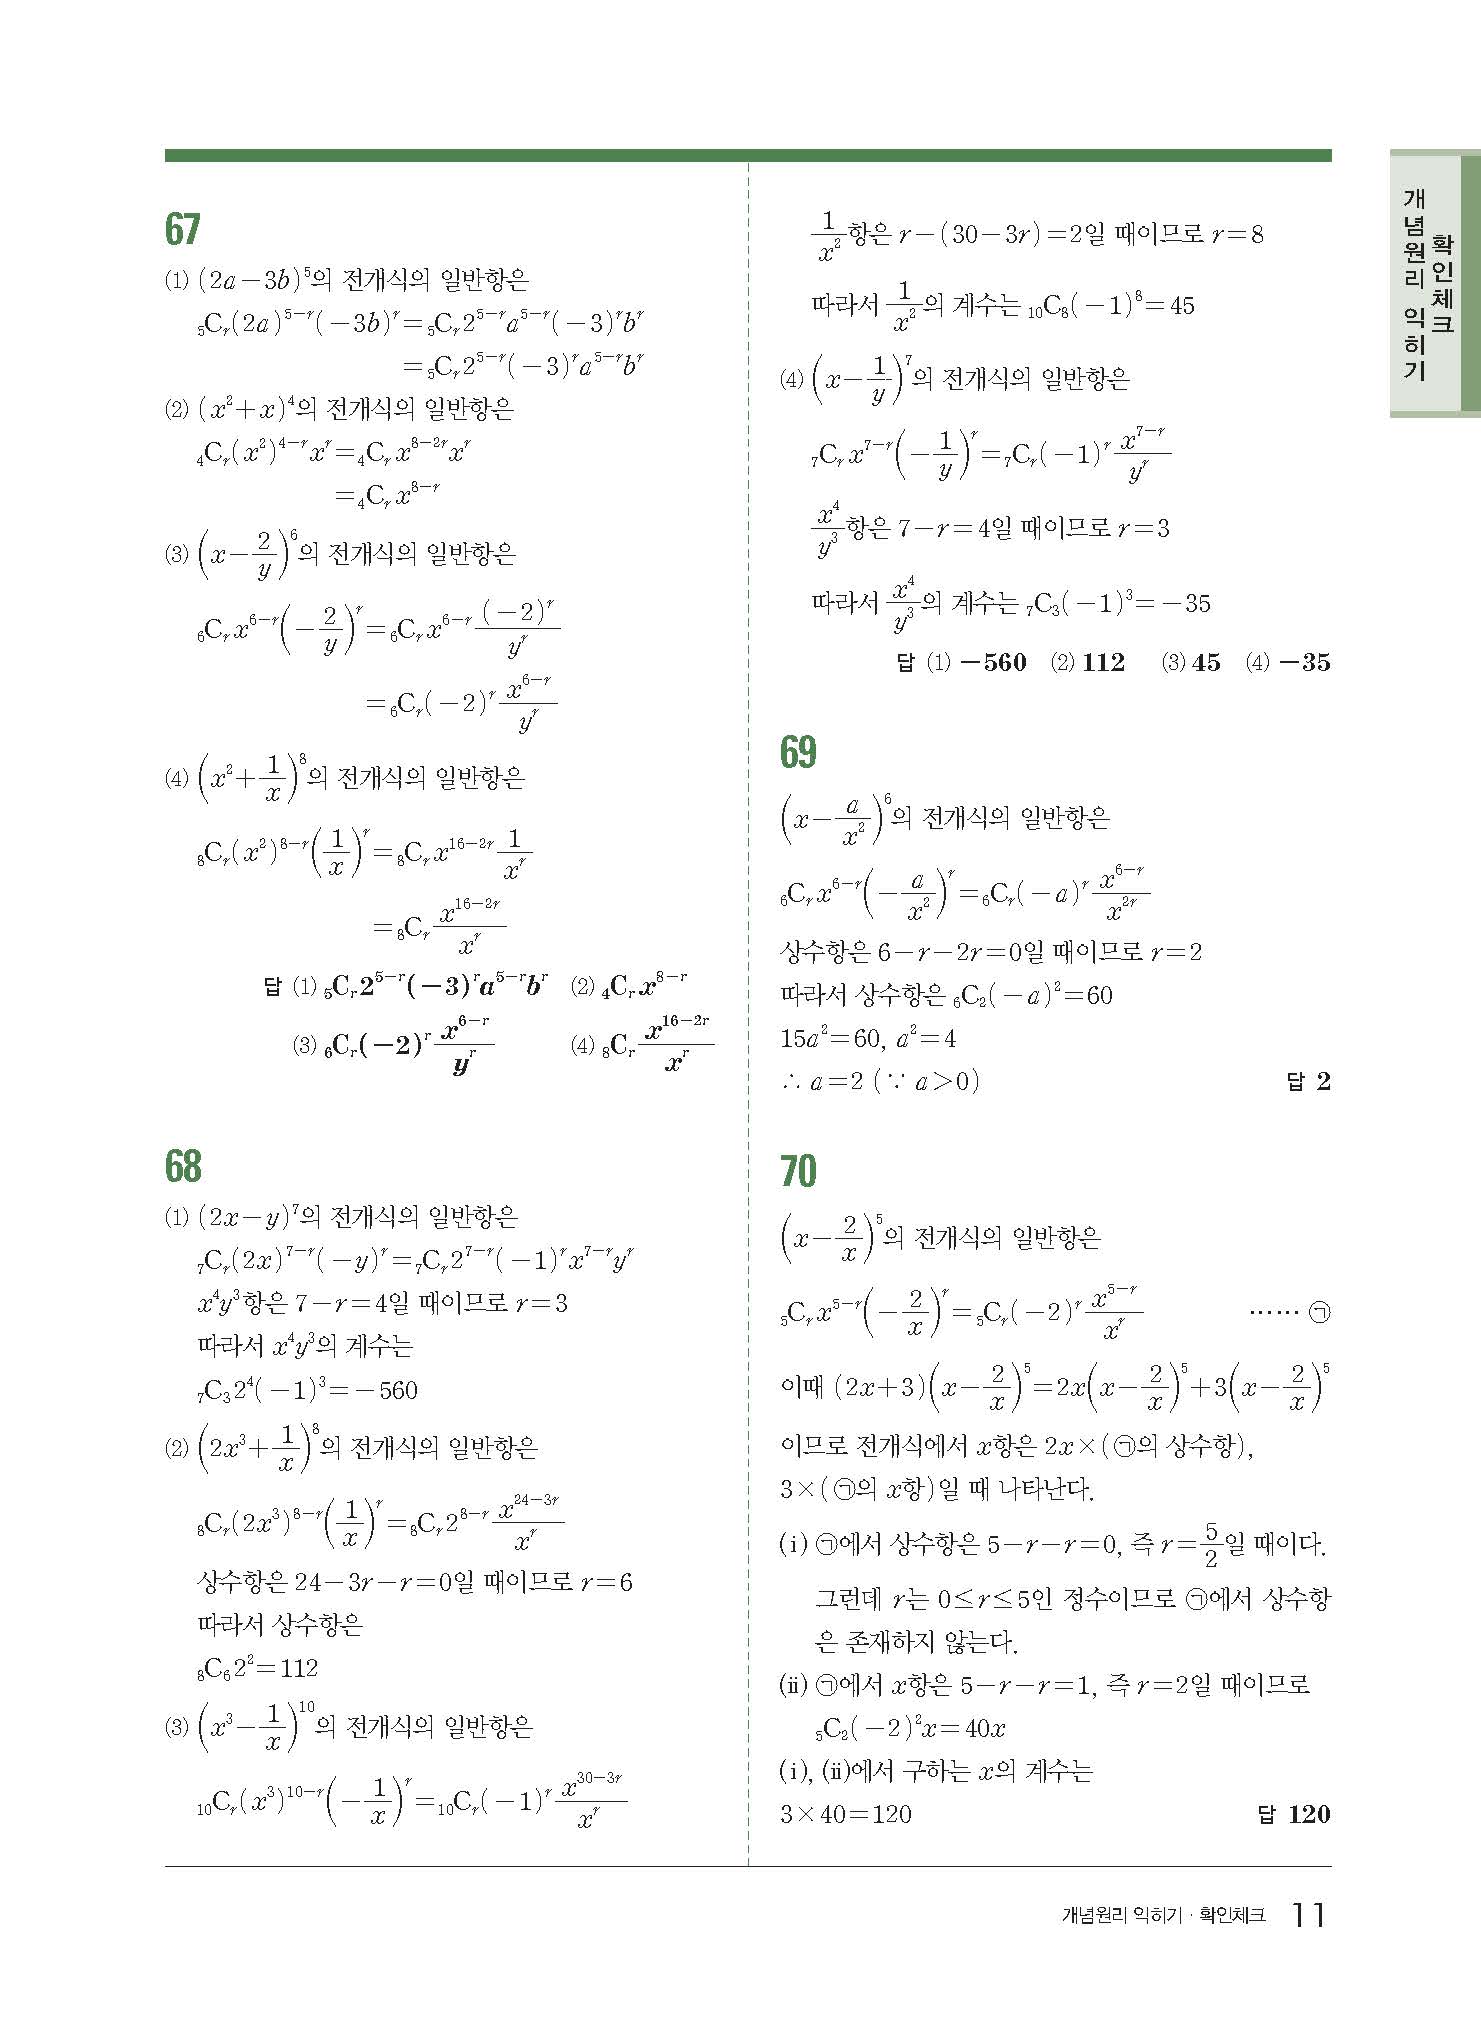 67
⑴ (2a-3b)⁵의 전개식의 일반항은
₅Cᵣ(2a)⁵⁻ʳ(-3b)ʳ=₅Cᵣ2⁵⁻ʳa⁵⁻ʳ(-3)ʳbʳ
=₅Cᵣ2⁵⁻ʳ(-3)ʳa⁵⁻ʳbʳ
⑵ (x²+x)⁴의 전개식의 일반항은
₄Cᵣ(x²)⁴⁻ʳxʳ=₄Cᵣx⁸⁻²ʳxʳ
=₄Cᵣx⁸⁻ʳ
⑶ (x-2/y)⁶의 전개식의 일반항은
₆Cᵣx⁶⁻ʳ(-2/y)ʳ=₆Cᵣx⁶⁻ʳ (-2)ʳ/yʳ
=₆Cᵣ(-2)ʳ x⁶⁻ʳ/yʳ
⑷ (x²+1/x)⁸의 전개식의 일반항은
₈Cᵣ(x²)⁸⁻ʳ(1/x)ʳ=₈Cᵣx¹⁶⁻²ʳ 1/xʳ
=₈Cᵣ x¹⁶⁻²ʳ/xʳ
답 ⑴ ₅Cᵣ2⁵⁻ʳ(-3)ʳa⁵⁻ʳbʳ ⑵ ₄Cᵣx⁸⁻ʳ
⑶ ₆Cᵣ(-2)ʳ x⁶⁻ʳ/yʳ ⑷ ₈Cᵣ x¹⁶⁻²ʳ/xʳ
68
⑴ (2x-y)⁷의 전개식의 일반항은
₇Cᵣ(2x)⁷⁻ʳ(-y)ʳ=₇Cᵣ2⁷⁻ʳ(-1)ʳx⁷⁻ʳyʳ
x⁴y³항은 7-r=4일 때이므로 r=3
따라서 x⁴y³의 계수는
₇C₃2⁴(-1)³=-560
⑵ (2x³+1/x)⁸의 전개식의 일반항은
₈Cᵣ(2x³)⁸⁻ʳ(1/x)ʳ=₈Cᵣ2⁸⁻ʳ x²⁴⁻³ʳ/xʳ
상수항은 24-3r-r=0일 때이므로 r=6
따라서 상수항은
₈C₆2²=112
⑶ (x³-1/x)¹⁰의 전개식의 일반항은
₁₀Cᵣ(x³)¹⁰⁻ʳ(-1/x)ʳ=₁₀Cᵣ(-1)ʳ x³⁰⁻³ʳ/xʳ
1/x²항은 r-(30-3r)=2일 때이므로 r=8
따라서 1/x²의 계수는 ₁₀C₈(-1)⁸=45
⑷ (x-1/y)⁷의 전개식의 일반항은
₇Cᵣx⁷⁻ʳ(-1/y)ʳ=₇Cᵣ(-1)ʳ x⁷⁻ʳ/yʳ
x⁴/y³항은 7-r=4일 때이므로 r=3
따라서 x⁴/y³의 계수는 ₇C₃(-1)³=-35
답 ⑴ -560 ⑵ 112 ⑶ 45 ⑷ -35
69
(x-a/x²)⁶의 전개식의 일반항은
₆Cᵣx⁶⁻ʳ(-a/x²)ʳ=₆Cᵣ(-a)ʳ x⁶⁻ʳ/x²ʳ
상수항은 6-r-2r=0일 때이므로 r=2
따라서 상수항은 ₆C₂(-a)²=60
15a²=60, a²=4
∴ a=2 (∵ a>0) 답 2
70
(x-2/x)⁵의 전개식의 일반항은
₅Cᵣx⁵⁻ʳ(-2/x)ʳ=₅Cᵣ(-2)ʳ x⁵⁻ʳ/xʳ …… ㉠
이때 (2x+3)(x-2/x)⁵=2x(x-2/x)⁵+3(x-2/x)⁵
이므로 전개식에서 x항은 2x×(㉠의 상수항),
3×(㉠의 x항)일 때 나타난다.
(ⅰ) ㉠에서 상수항은 5-r-r=0, 즉 r=5/2일 때이다.
그런데 r는 0≤r≤5인 정수이므로 ㉠에서 상수항
은 존재하지 않는다.
(ⅱ) ㉠에서 x항은 5-r-r=1, 즉 r=2일 때이므로
₅C₂(-2)²x=40x
(ⅰ), (ⅱ)에서 구하는 x의 계수는
3×40=120 답 120
개념원리 익히기
확인체크
개념원리 익히기 · 확인체크 11